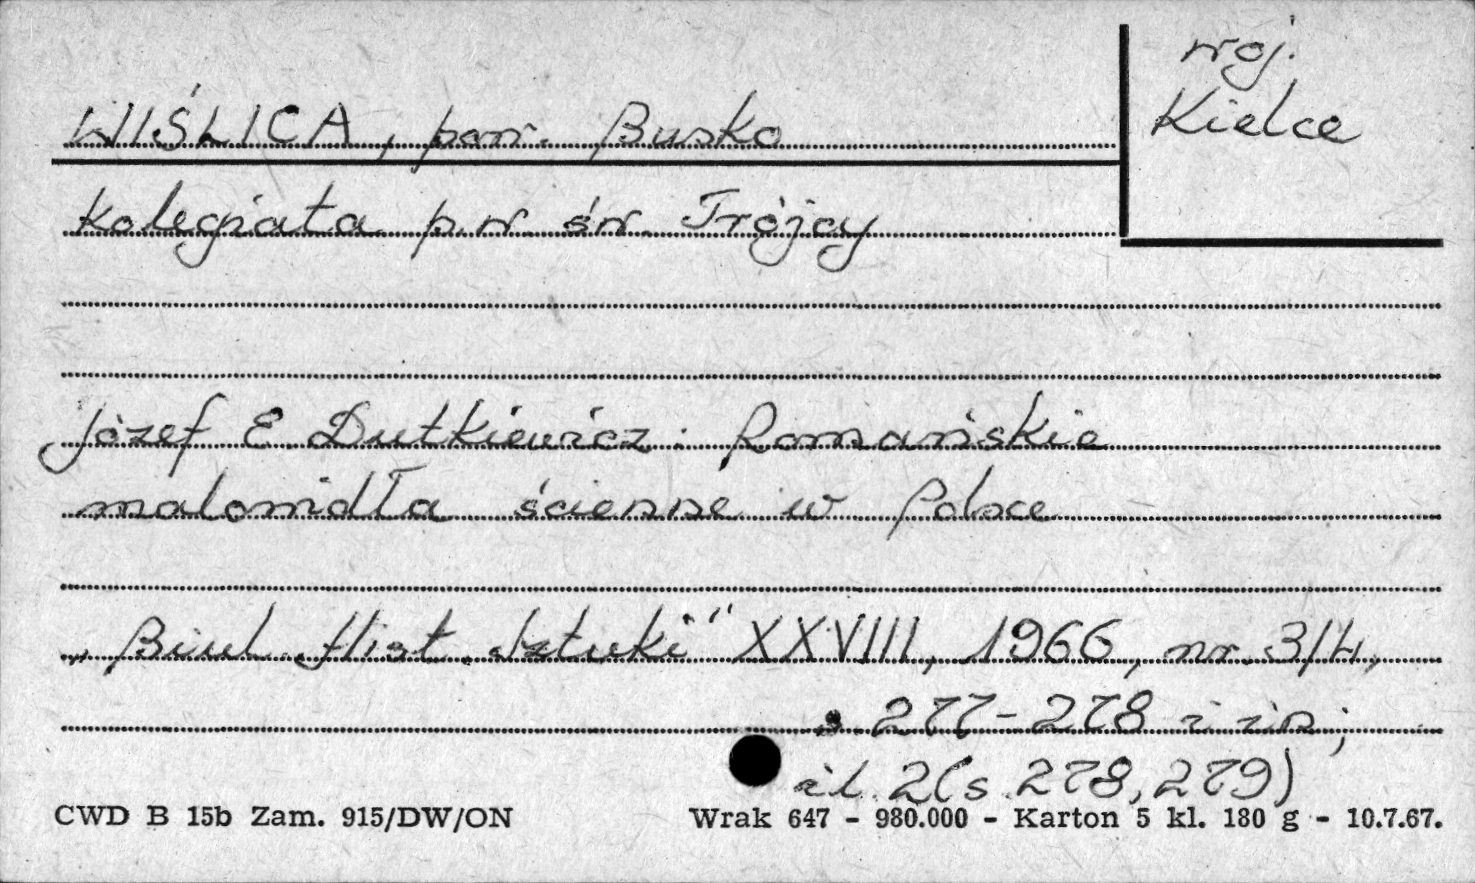 woj.
Kielce
WIŚLICA, pow. Busko
Kolegiata p.w. św. Trójcy
Józef E Dutkiewicz: Romańskie
malowidła ścienne w Polsce
„Biul. Hist. Sztuki" XXVIII, 1966, nr. 3/4,
s. 277-278 i in;
il. 2 (s. 278, 279)
CWD B 15b Zam. 915/DW/ON
Wrak 647 - 980.000 - Karton 5 kl. 180 g - 10.7.67.